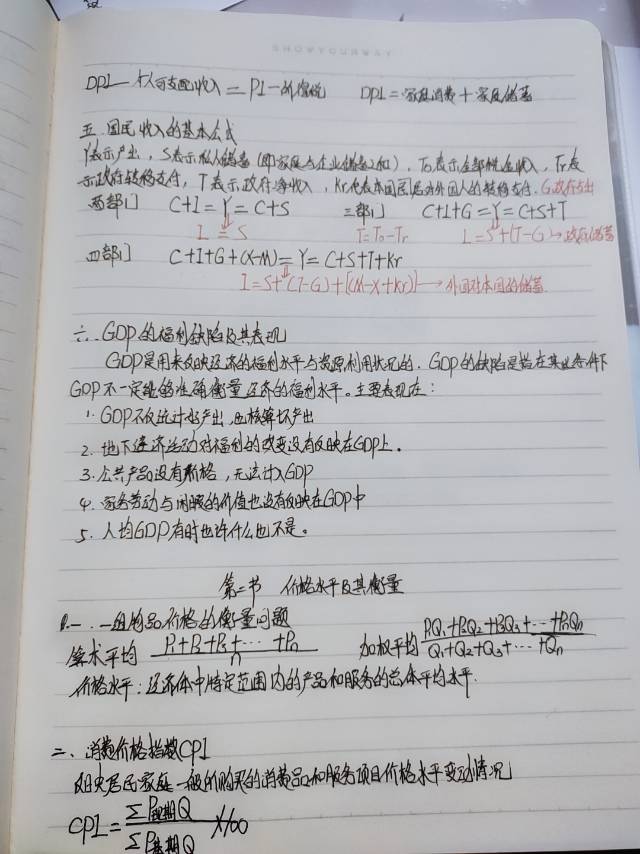 SHOWYOURWAY
DPI—个人可支配收入 = PI—所得税 DPI = 家庭消费 + 家庭储蓄
五、国民收入的基本公式
Y表示产出，S表示私人储蓄（即家庭与企业储蓄之和），To表示全部税金收入，Tr表
示政府转移支付，T表示政府净收入，Kr代表本国居民对外国人的转移支付. G政府支出
两部门 C+I=Y=C+S 三部门 C+I+G=Y=C+S+T
I=S T=To-Tr I=S+(T-G)→政府储蓄
四部门 C+I+G+(X-M)=Y=C+S+T+Kr
I=S+(T-G)+(M-X+Kr)→外国对本国的储蓄
六、GDP的福利缺陷及其表现
GDP是用来反映经济的福利水平与资源利用状况的. GDP的缺陷是指在某些条件下
GDP不一定能够准确衡量经济的福利水平。主要表现在：
1. GDP不仅统计好产出，也核算坏产出
2. 地下经济活动对福利的改变没有反映在GDP上.
3. 公共产品没有价格，无法计入GDP
4. 家务劳动与闲暇的价值也没有反映在GDP中
5. 人均GDP有时也许什么也不是。
第二节 价格水平及其衡量
一. 一组物品价格的衡量问题
算术平均 P₁+P₂+P₃+…+Pn / n 加权平均 P₁Q₁+P₂Q₂+P₃Q₃+…+PnQn / Q₁+Q₂+Q₃+…+Qn
价格水平：经济体中特定范围内的产品和服务的总体平均水平.
二、消费价格指数CPI
反映居民家庭一般所购买的消费品和服务项目价格水平变动情况
CPI = ΣP现期Q / ΣP基期Q ×100